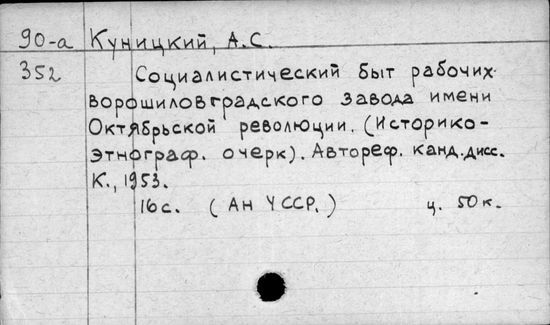 90-а Куницкий, А.С.
352 Социалистический быт рабочих
ворошиловградского завода имени
Октябрьской революции. (Историко-
этнограф. очерк). Автореф. канд. дисс.
К., 1953.
16 с. (АН УССР.) ц. 50 к.